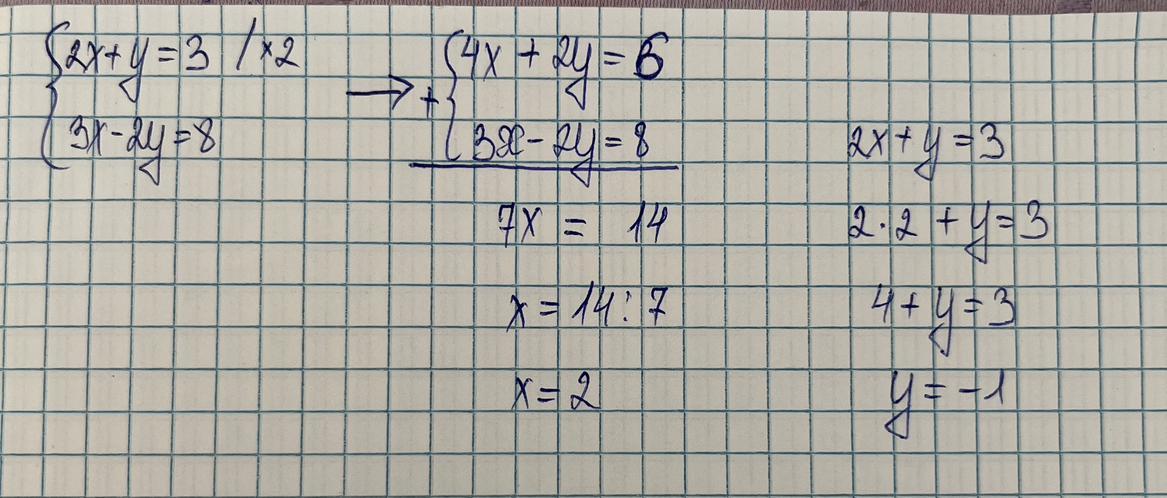 2x+y=3 /×2
3x-2y=8
→
+
4x + 2y = 6
3x - 2y = 8
7x = 14
x = 14:7
x = 2
2x+y=3
2·2 + y=3
4+y=3
y=-1